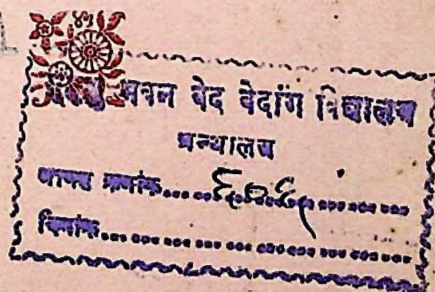 भवन वेद वेदांग विद्यालय
ग्रन्थालय
आगत क्रमांक.....६०६........
दिनांक........................